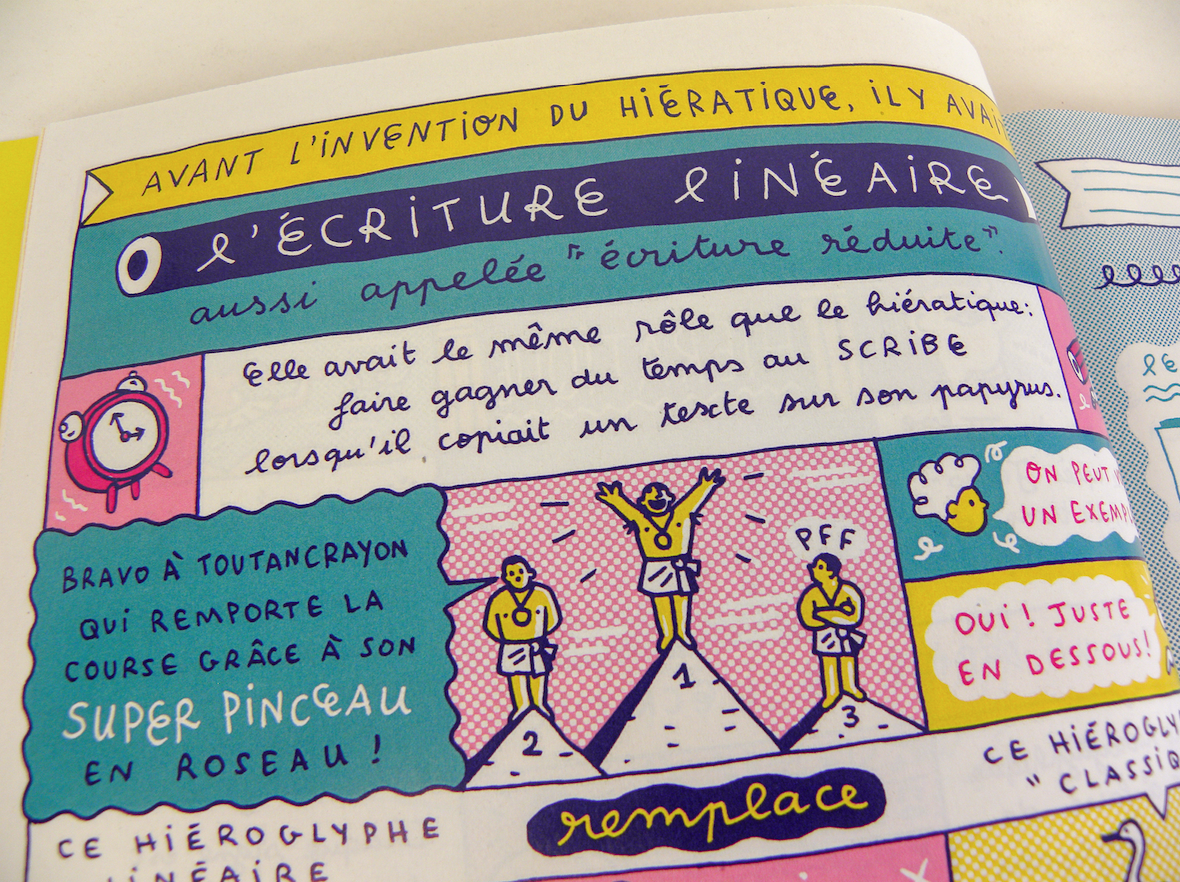 AVANT L'INVENTION DU HIÉRATIQUE, IL Y AVAI
L'ÉCRITURE LINÉAIRE
aussi appelée "écriture réduite".
Elle avait le même rôle que le hiératique:
faire gagner du temps au SCRIBE
lorsqu'il copiait un texte sur son papyrus.
BRAVO À TOUTANCRAYON
QUI REMPORTE LA
COURSE GRÂCE À SON
SUPER PINCEAU
EN ROSEAU !
PFF
1
2
3
ON PEUT
UN EXEMP
OUI ! JUSTE
EN DESSOUS !
CE HIÉROGLYPHE
LINÉAIRE
remplace
CE HIÉROGLY
"CLASSIQ